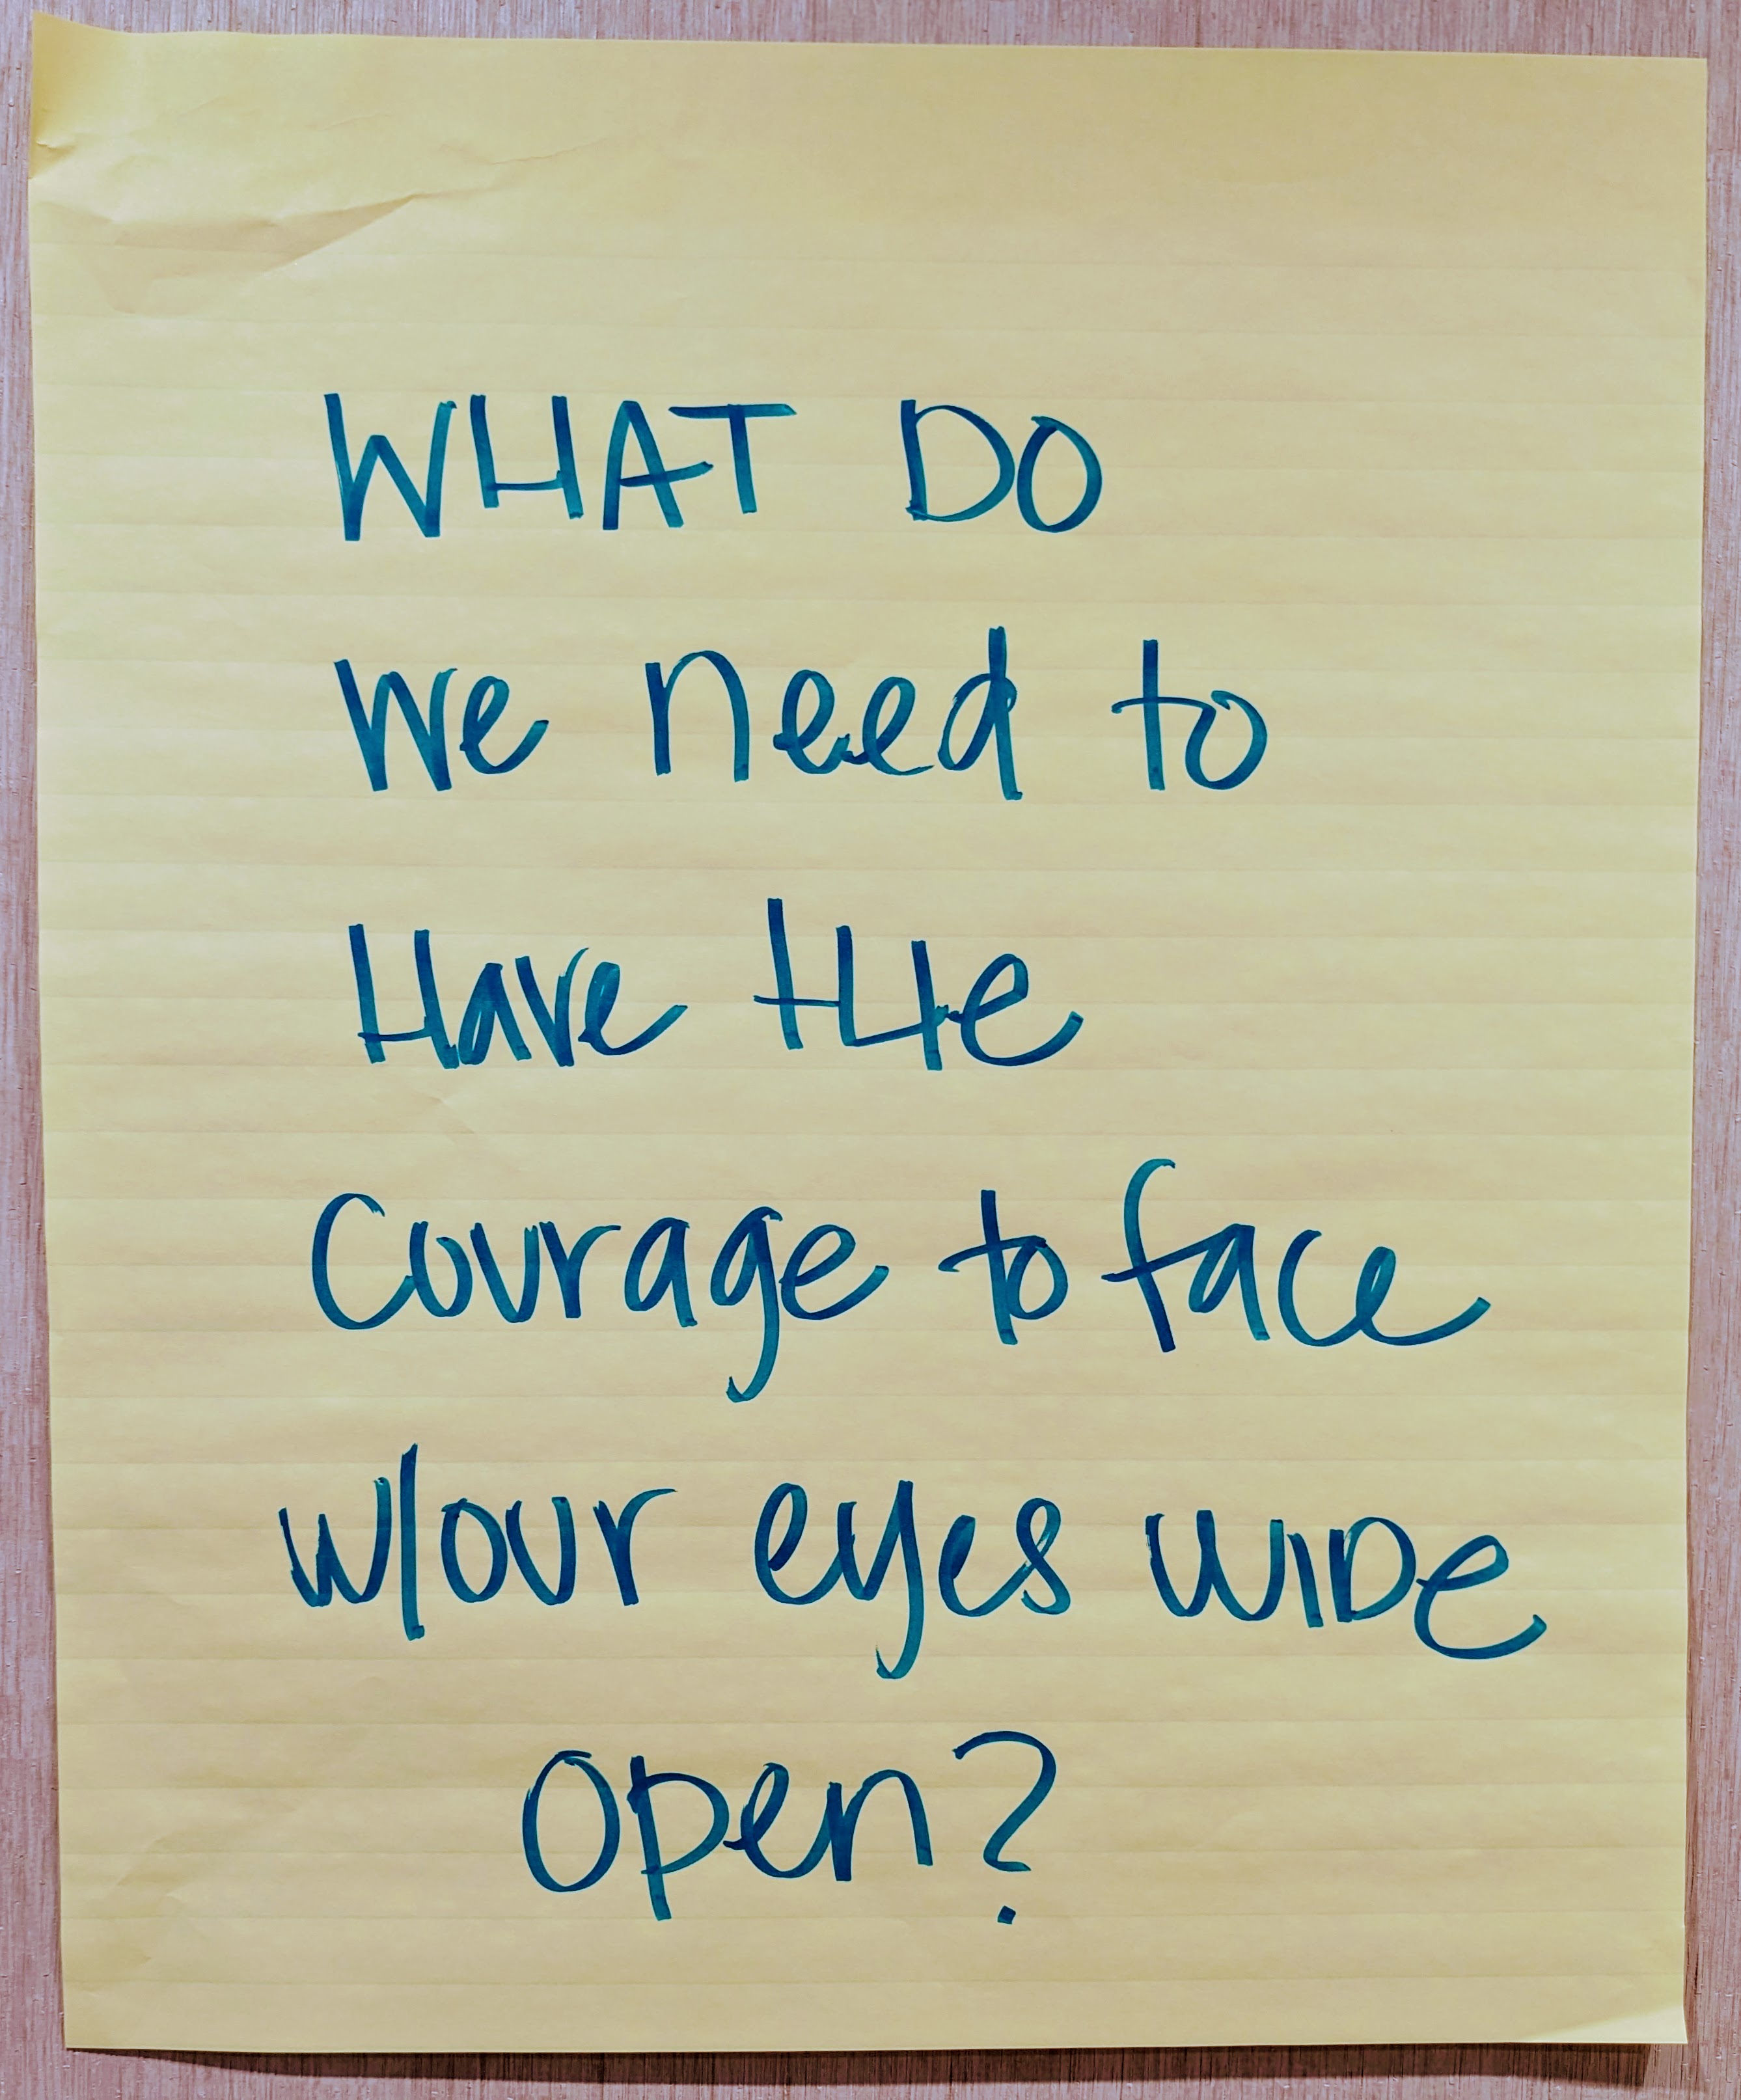 WHAT DO
we need to
Have tHe
courage to face
w/our eyes wiDe
open?